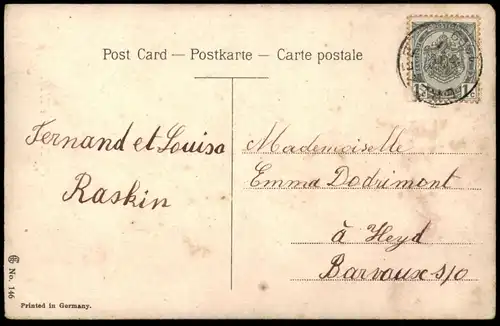 Post Card — Postkarte — Carte postale
Fernand et Louisa
Raskin
Mademoiselle
Emma Dodrimont
à Heyd
Barvaux s/o
No. 146
Printed in Germany.